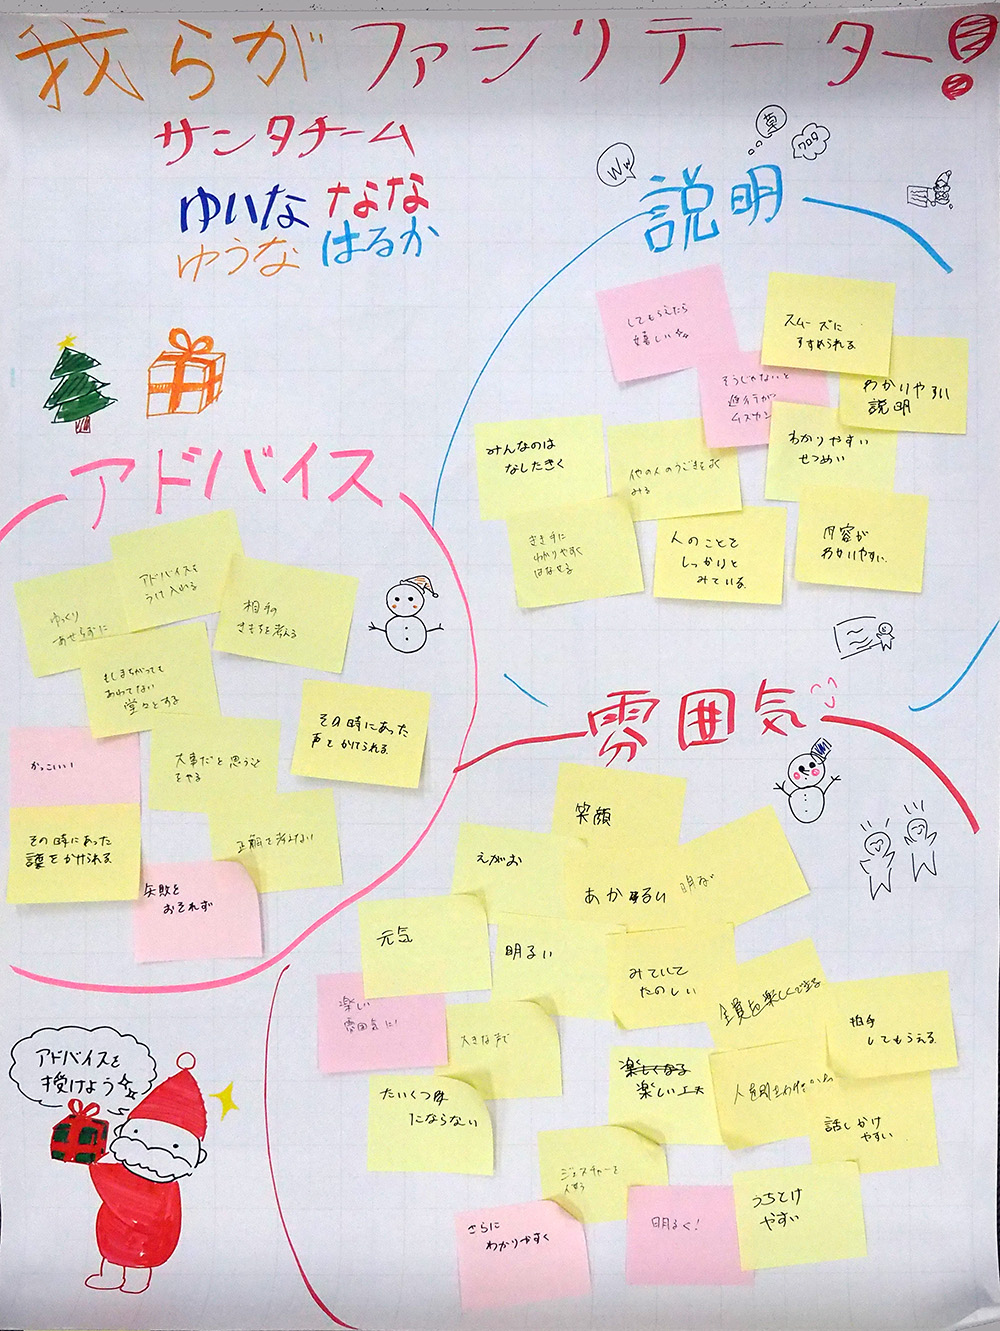 我らがファシリテーター!
サンタチーム
ゆいな なな
ゆうな はるか
Ww
草
ワロタ
説明
してもらえたら
嬉しい
スムーズに
すすめられる
そうじゃないと
進行が
ムズカシ
わかりやすい
説明
みんなのは
なしたきく
他の人のうごきをよく
みる
わかりやすい
せつめい
きき手に
わかりやすく
はなせる
人のことを
しっかりと
みている
内容が
わかりやすい
アドバイス
ゆっくり
あせらずに
アドバイスを
うけ入れる
相手の
きもちを考える
もしまちがっても
あわてない
堂々とする
その時にあった
声をかけられる
かっこいい!
大事だと思うこと
をやる
その時にあった
護をかけられる
正解を考えない
失敗を
おそれず
雰囲気
笑顔
えがお
あかるい
明るい
元気
みていて
たのしい
全員を楽しくできる
拍手
してもらえる
楽しい
雰囲気に!
大きな声で
たいくつ
にならない
楽しくなる
楽しい工夫
話しかけ
やすい
ジェスチャーを
使う
さらに
わかりやすく
明るく!
うちとけ
やすい
アドバイスを
授けよう